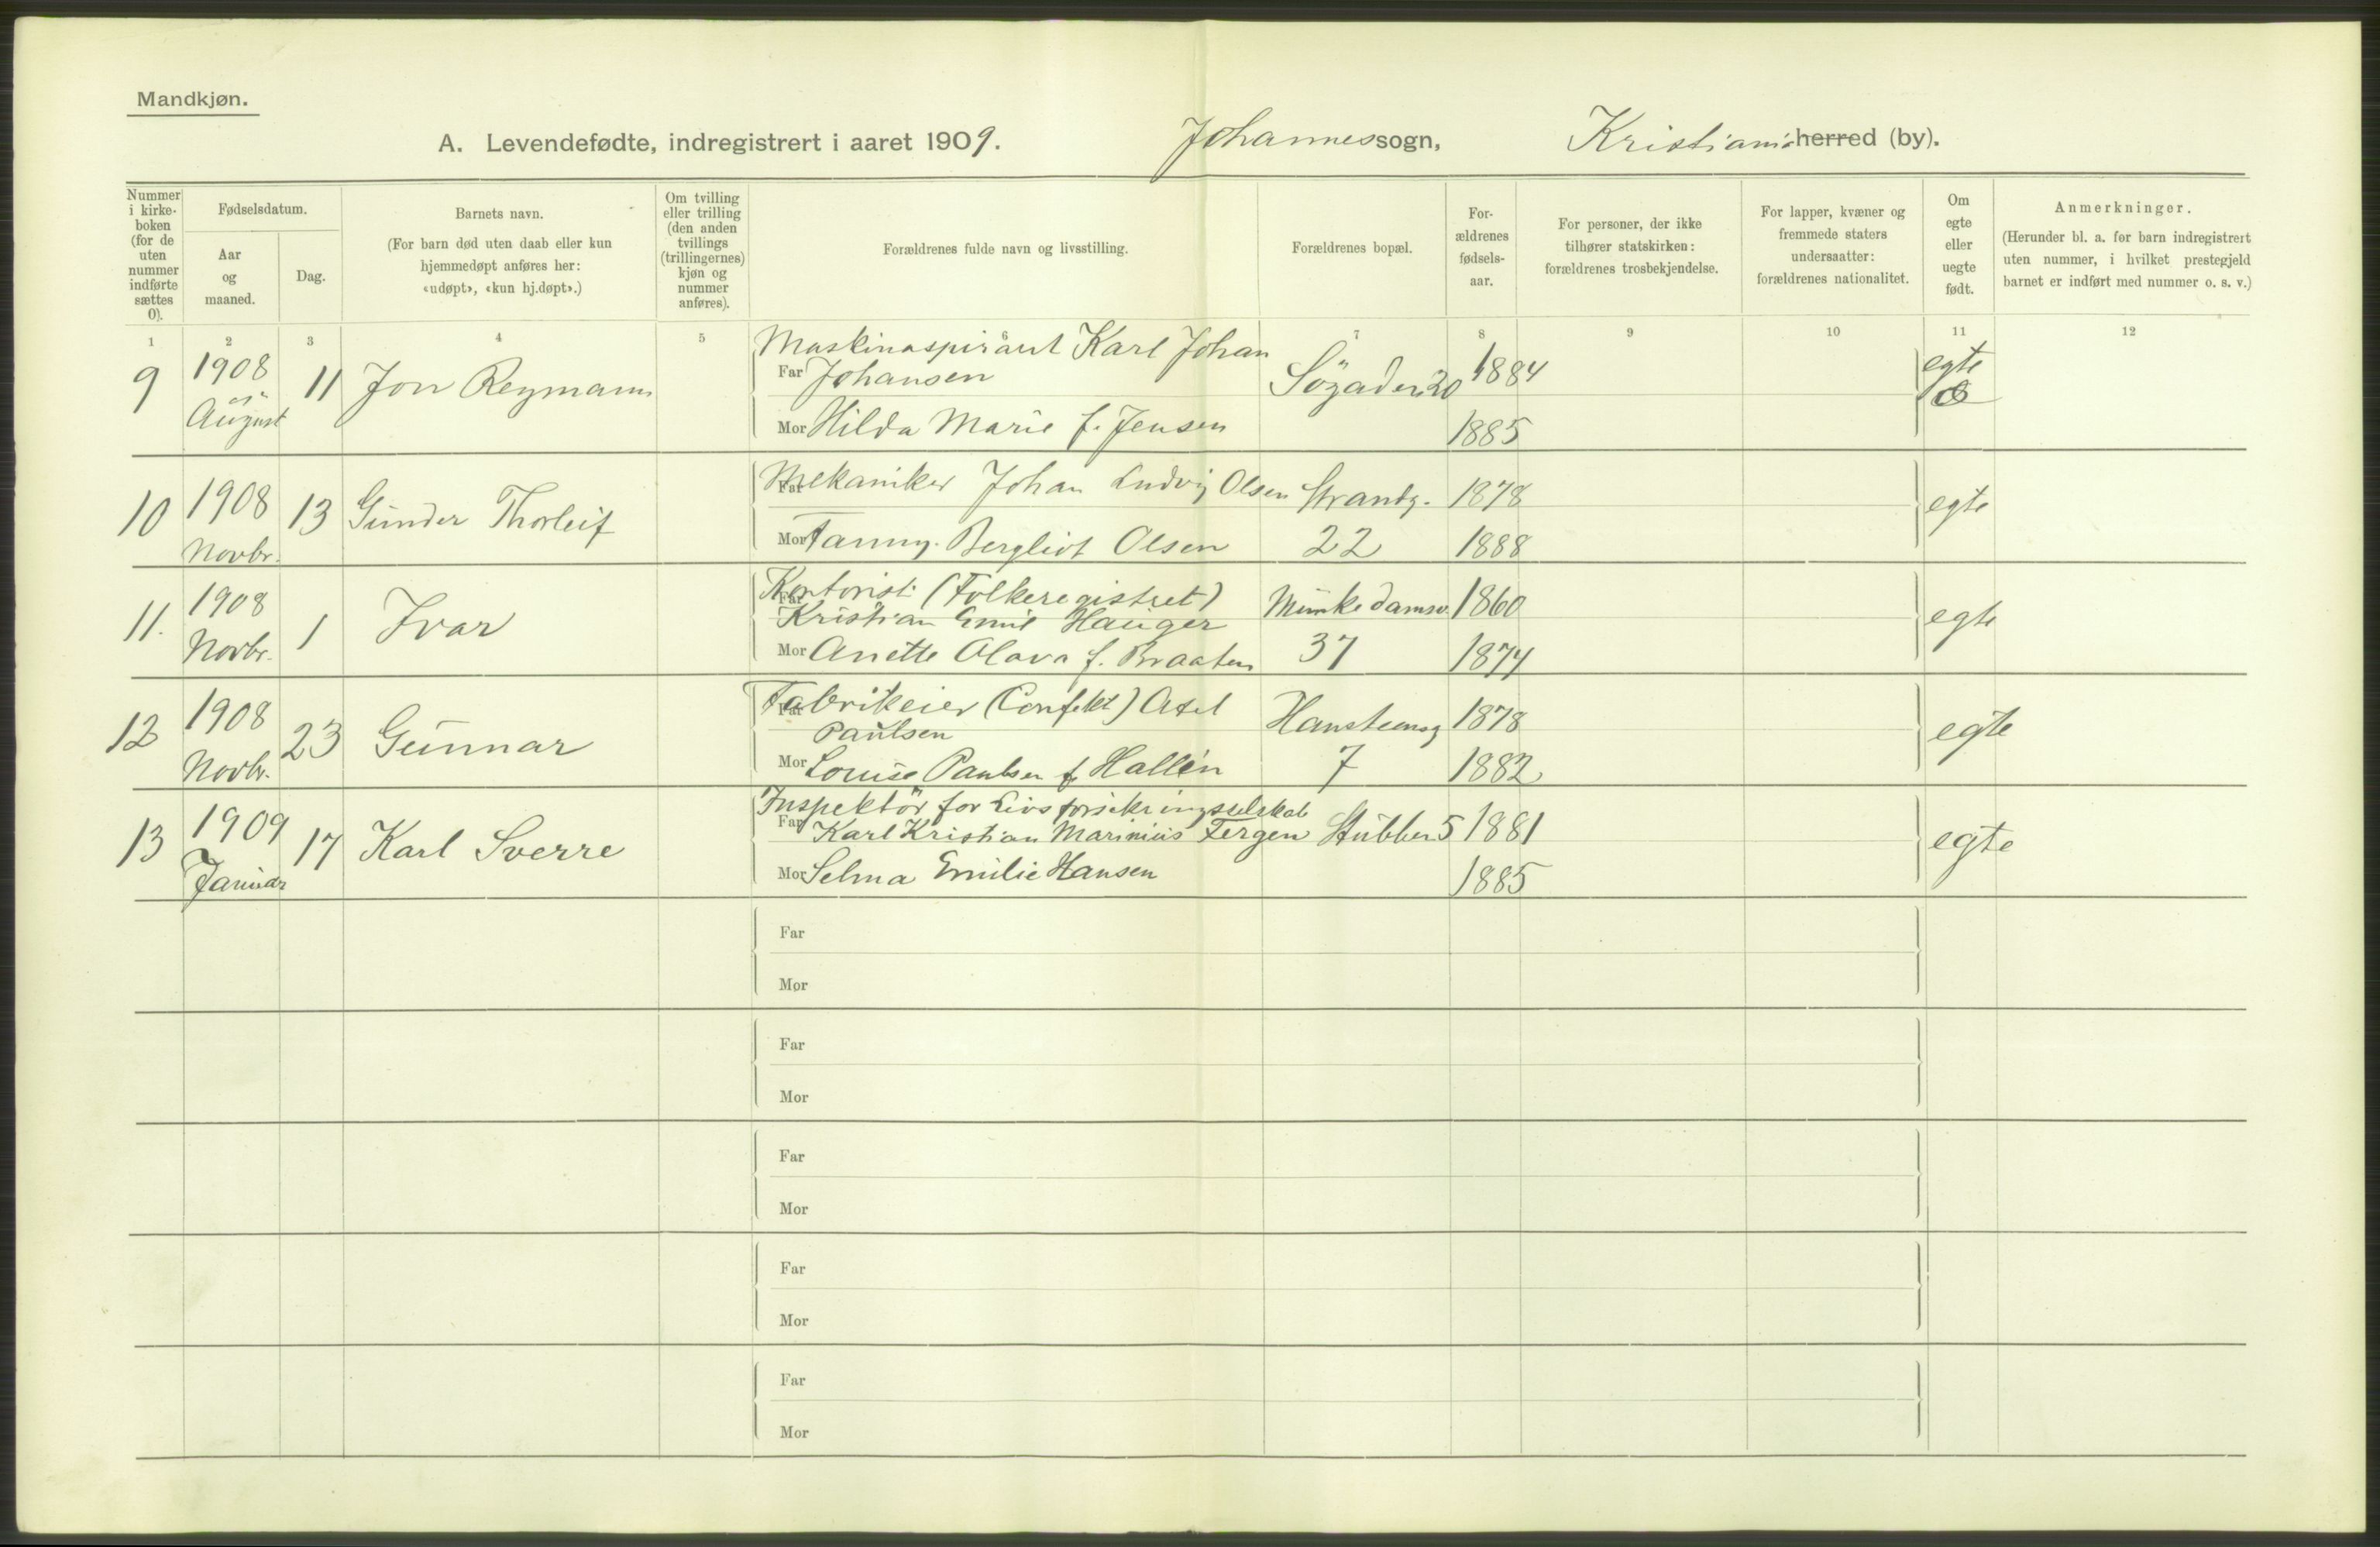 Mandkjøn.
A. Levendefødte, indregistrert i aaret 1909. Johannes sogn, Kristiania herred (by).
Nummer i kirke-boken (for de uten nummer indførte sættes 0).
Fødselsdatum.
Aar og maaned.
Dag.
Barnets navn.
(For barn død uten daab eller kun hjemmedøpt anføres her: «udøpt», «kun hj.døpt».)
Om tvilling eller trilling (den anden tvillings (trillingernes) kjøn og nummer anføres).
Forældrenes fulde navn og livsstilling.
Forældrenes bopæl.
For-ældrenes fødsels-aar.
For personer, der ikke tilhører statskirken: forældrenes trosbekjendelse.
For lapper, kvæner og fremmede staters undersaatter: forældrenes nationalitet.
Om egte eller uegte født.
Anmerkninger.
(Herunder bl. a. for barn indregistrert uten nummer, i hvilket prestegjeld barnet er indført med nummer o. s. v.)
1 2 3 4 5 6 7 8 9 10 11 12
9 1908 August 11 Jon Reymann
Maskinaspirant Karl Johan
Far Johansen Søgaden 20 1884 egte
Mor Hilda Marie f. Jensen 1885
10 1908 Novbr. 13 Gunder Thorleif
Far Mekaniker Johan Ludvig Olsen Strandg. 1878 egte
Mor Fanny Bergliot Olsen 22 1888
11. 1908 Novbr. 1 Ivar
Kontorist (Folkeregistret)
Far Kristian Emil Hauger Munkedamsv. 1860 egte
Mor Anette Olava f. Braaten 37 1874
12 1908 Novbr. 23 Gunnar
Far Fabrikeier (Confekt) Axel
Paulsen Hansteensg 1878 egte
Mor Louise Paulsen f. Hallén 7 1882
13 1909 Januar 17 Karl Sverre
Inspektør for Livsforsikringsselskab
Far Karl Kristian Marinius Fergen Stubben 5 1881 egte
Mor Selma Emilie Hansen 1885
Far
Mor
Far
Mor
Far
Mor
Far
Mor
Far
Mor